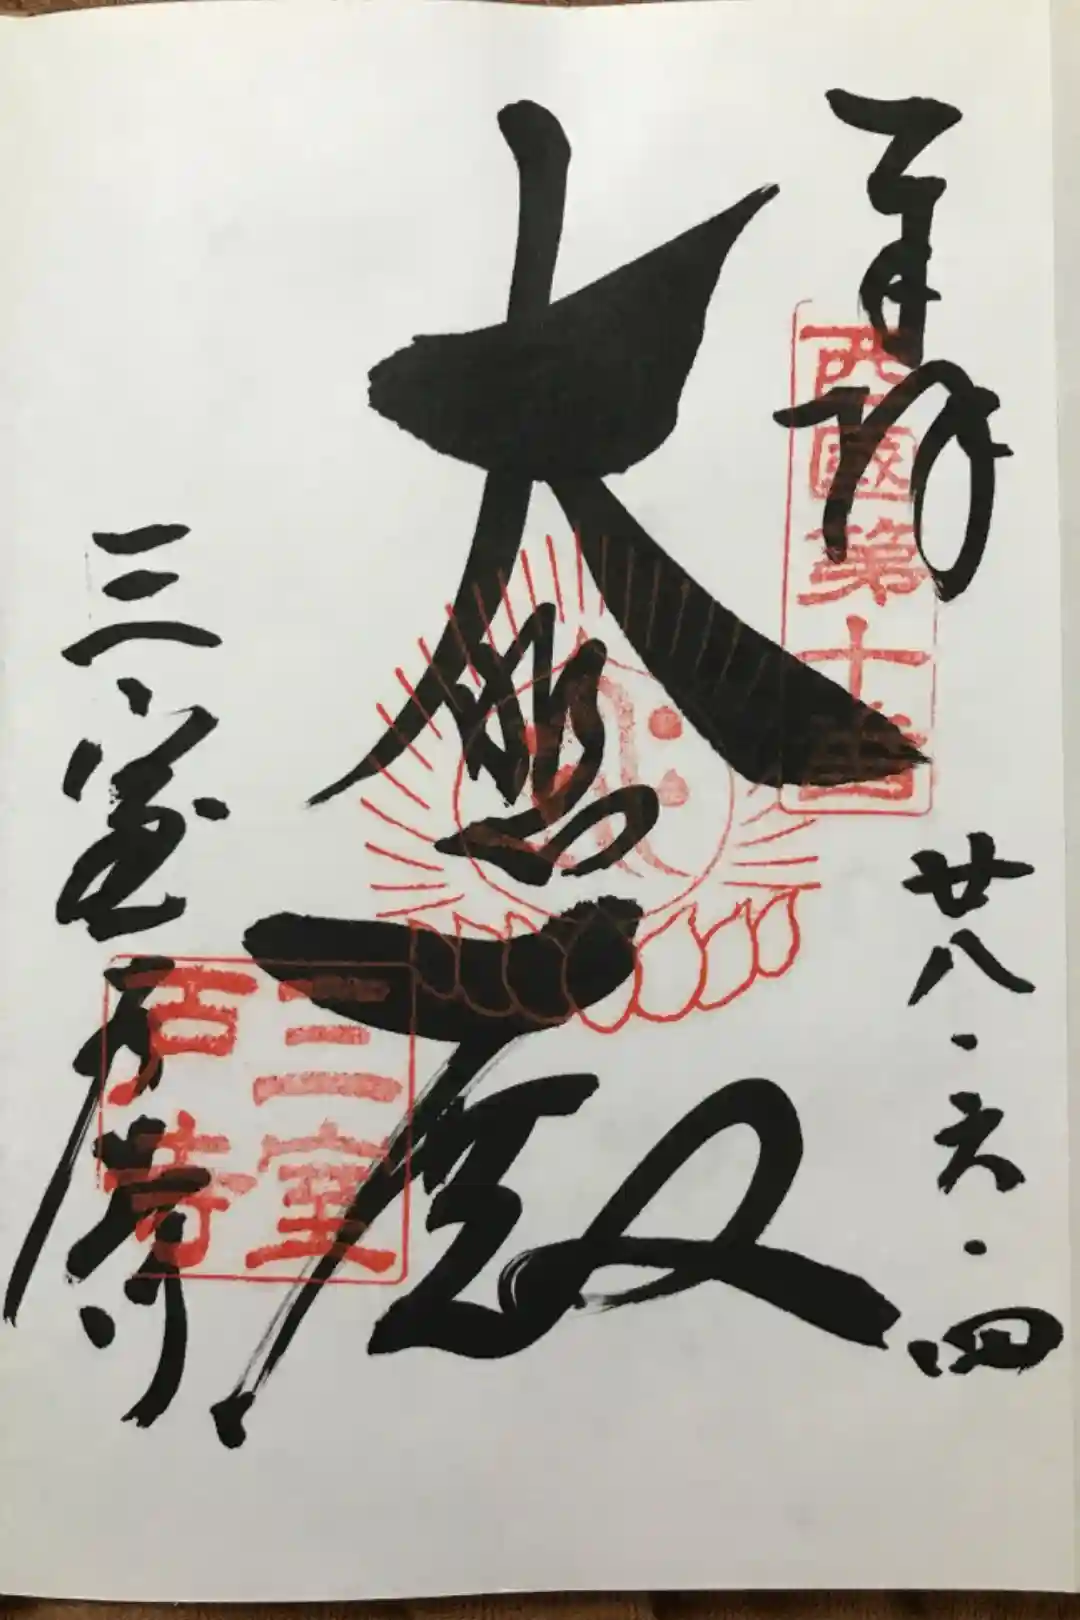 奉拝
西國第十番
廿八.六.四
大悲殿
三室戸寺
三室
戸寺